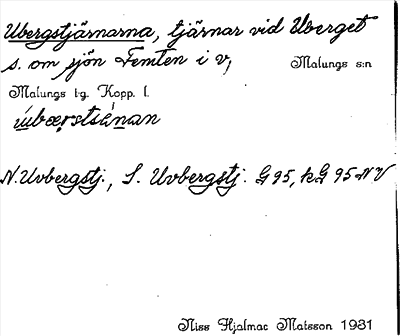 Ubergstjärnarna, tjärnar vid Uberget
s. om sjön Femten i v,
Malungs s:n
Malungs t:g. Kopp. l.
N. Uvbergstj., S. Uvbergstj. G 95, kG 95 NV
Niss Hjalmar Matsson 1931